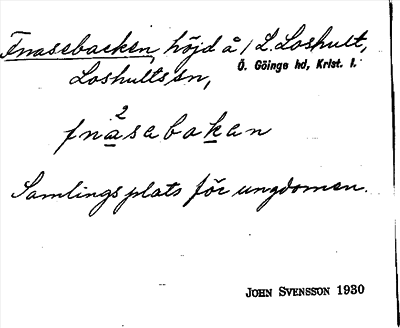 Fnasebacken, höjd å L. Loshult,
Loshults sn, Ö. Göinge hd, Krist. l.
2
fnasabakan
Samlingsplats för ungdomen.
JOHN SVENSSON 1930